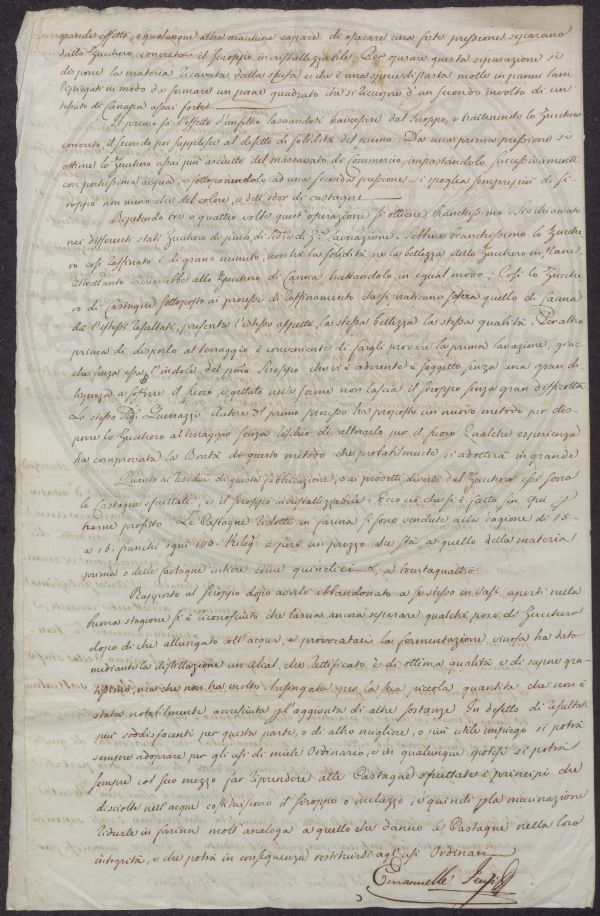 grande effetto, o qualunque altra machina capace di operare una forte pressione separano
dallo Zucchero concreto il siroppo incristallizzabile. Per operare questa separazione si
dispone la materia ricavata dalla stufa e che è una specie di pasta molle in panni lani
ripiegati in modo da formare un pane quadrato che si ricuopre d'un secondo involto di un
tessuto di Canapa assai forte
Il primo fa l'effetto d'un filtro lasciandosi traversare dal Siroppo, e trattenendo lo Zucchero
concreto, il secondo per supplire al difetto di solidità del primo. Da una prima pressione si
ottiene lo Zucchero assai più asciutto del mascavato di Commercio, impastandolo successivamente
con pochissima acqua, e sottoponendolo ad una seconda pressione si spoglia sempre più di si-
roppo non meno che del colore, e dell'odor di castagne
Ripetendo tre o quattro volte quest'operazione si ottiene bianchissimo. Si è chiamato
nei differenti stati Zucchero di prima, di seconda, di 3.a lavazione. Sebbene bianchissimo lo Zucche-
ro così raffinato è di grano minuto, non ha la solidità ne la bellezza dello Zucchero in Pane.
Altrettanto avverrebbe allo Zucchero di Canna trattandolo in egual modo: Così lo Zucche-
ro di Castagne sottoposto ai processi di raffinamento che si praticano sopra quello di Canna
dà l'istessi resultati, presenta l'istesso aspetto, la stessa bellezza la stessa qualità. Per altro
prima di disporlo al terraggio è conveniente di fargli provare la prima lavazione, giac-
chè senza essa l'indole del primo Siroppo che vi è aderente è soggetto, senza una gran di-
ligenza a soffrire il fuoco, e gettato nelle forme non lascia il siroppo senza gran difficoltà
Lo stesso Sig. Guerrazzi Autore del primo processo ha proposto un nuovo metodo per dis-
porre lo Zucchero al terraggio senza rischio di alterarlo per il fuoco. Qualche esperienza
ha comprovata la Bontà di questo metodo che probabilmente si adotterà in grande
Quanto ai residui di questa fabbricazione, o ai prodotti diversi dal Zucchero essi sono
le Castagne sfruttate, e il siroppo incristallizzabile. Ecco ciò che si è fatto fin qui per
trarne profitto. Le Castagne ridotte in farina si sono vendute alla ragione di 15
a 16. franchi ogni 100. Kilog. e però un prezzo che sta a quello della materia
prima o delle castagne intiere come quindici a trentaquattro
Rapporto al Siroppo dopo averlo abbandonato a se stesso in vasi aperti nella
buona stagione si è riconosciuto che lascia ancora separare qualche poco di Zucchero
dopo di che allungato coll'acqua, e provocatavi la fermentazione vinosa ha dato
mediante la distillazione un alcol che rettificato è di ottima qualità e di sapore gra-
tissimo, ma che non ha molto lusingato per la sua piccola quantità che non è
stata notabilmente accresciuta per l'aggiunta di altre sostanze. In difetto di resultati
più soddisfacenti per questa parte, o di altro migliore, o più utile impiego si potrà
sempre adoprare per gli usi di miele Ordinario, e in qualunque ipotesi si potrà
sempre col suo mezzo far riprendere alle Castagne sfruttate i principj che
disciolti nell'acqua costituiscono il siroppo o melazzo, e quindi per la macinazione
ridurle in farina molt'analoga a quello che danno le Castagne nella loro
integrità, e che potrà in conseguenza restituirsi agl'usi Ordinari
Emanuelle